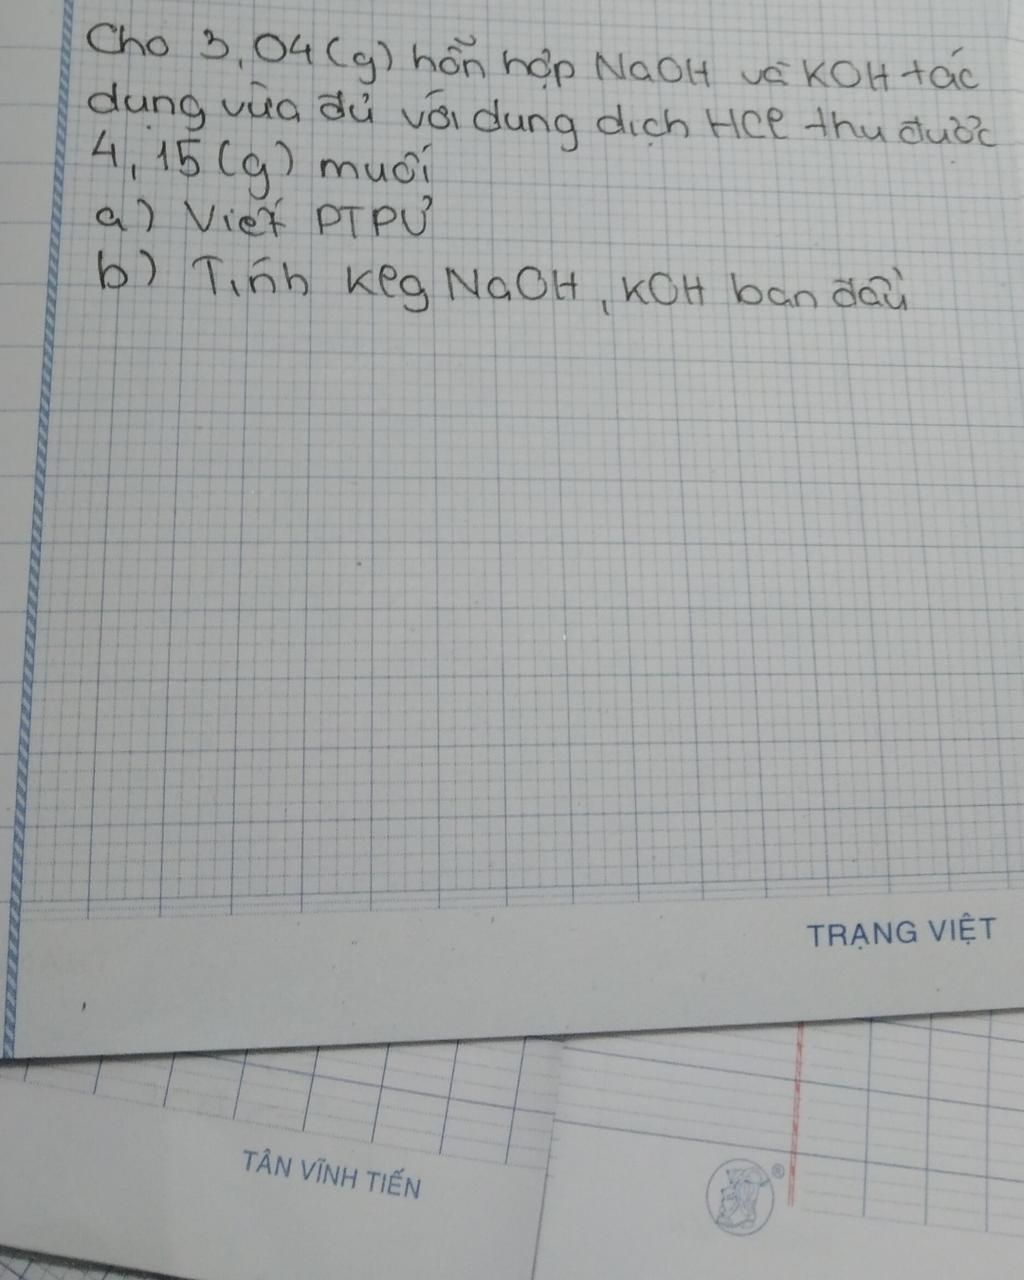 Cho 3,04(g) hỗn hợp NaOH và KOH tác
dụng vừa đủ với dung dịch HCl thu được
4,15(g) muối
a) Viết PTPƯ
b) Tính klg NaOH, KOH ban đầu
TRANG VIỆT
TÂN VĨNH TIẾN
®